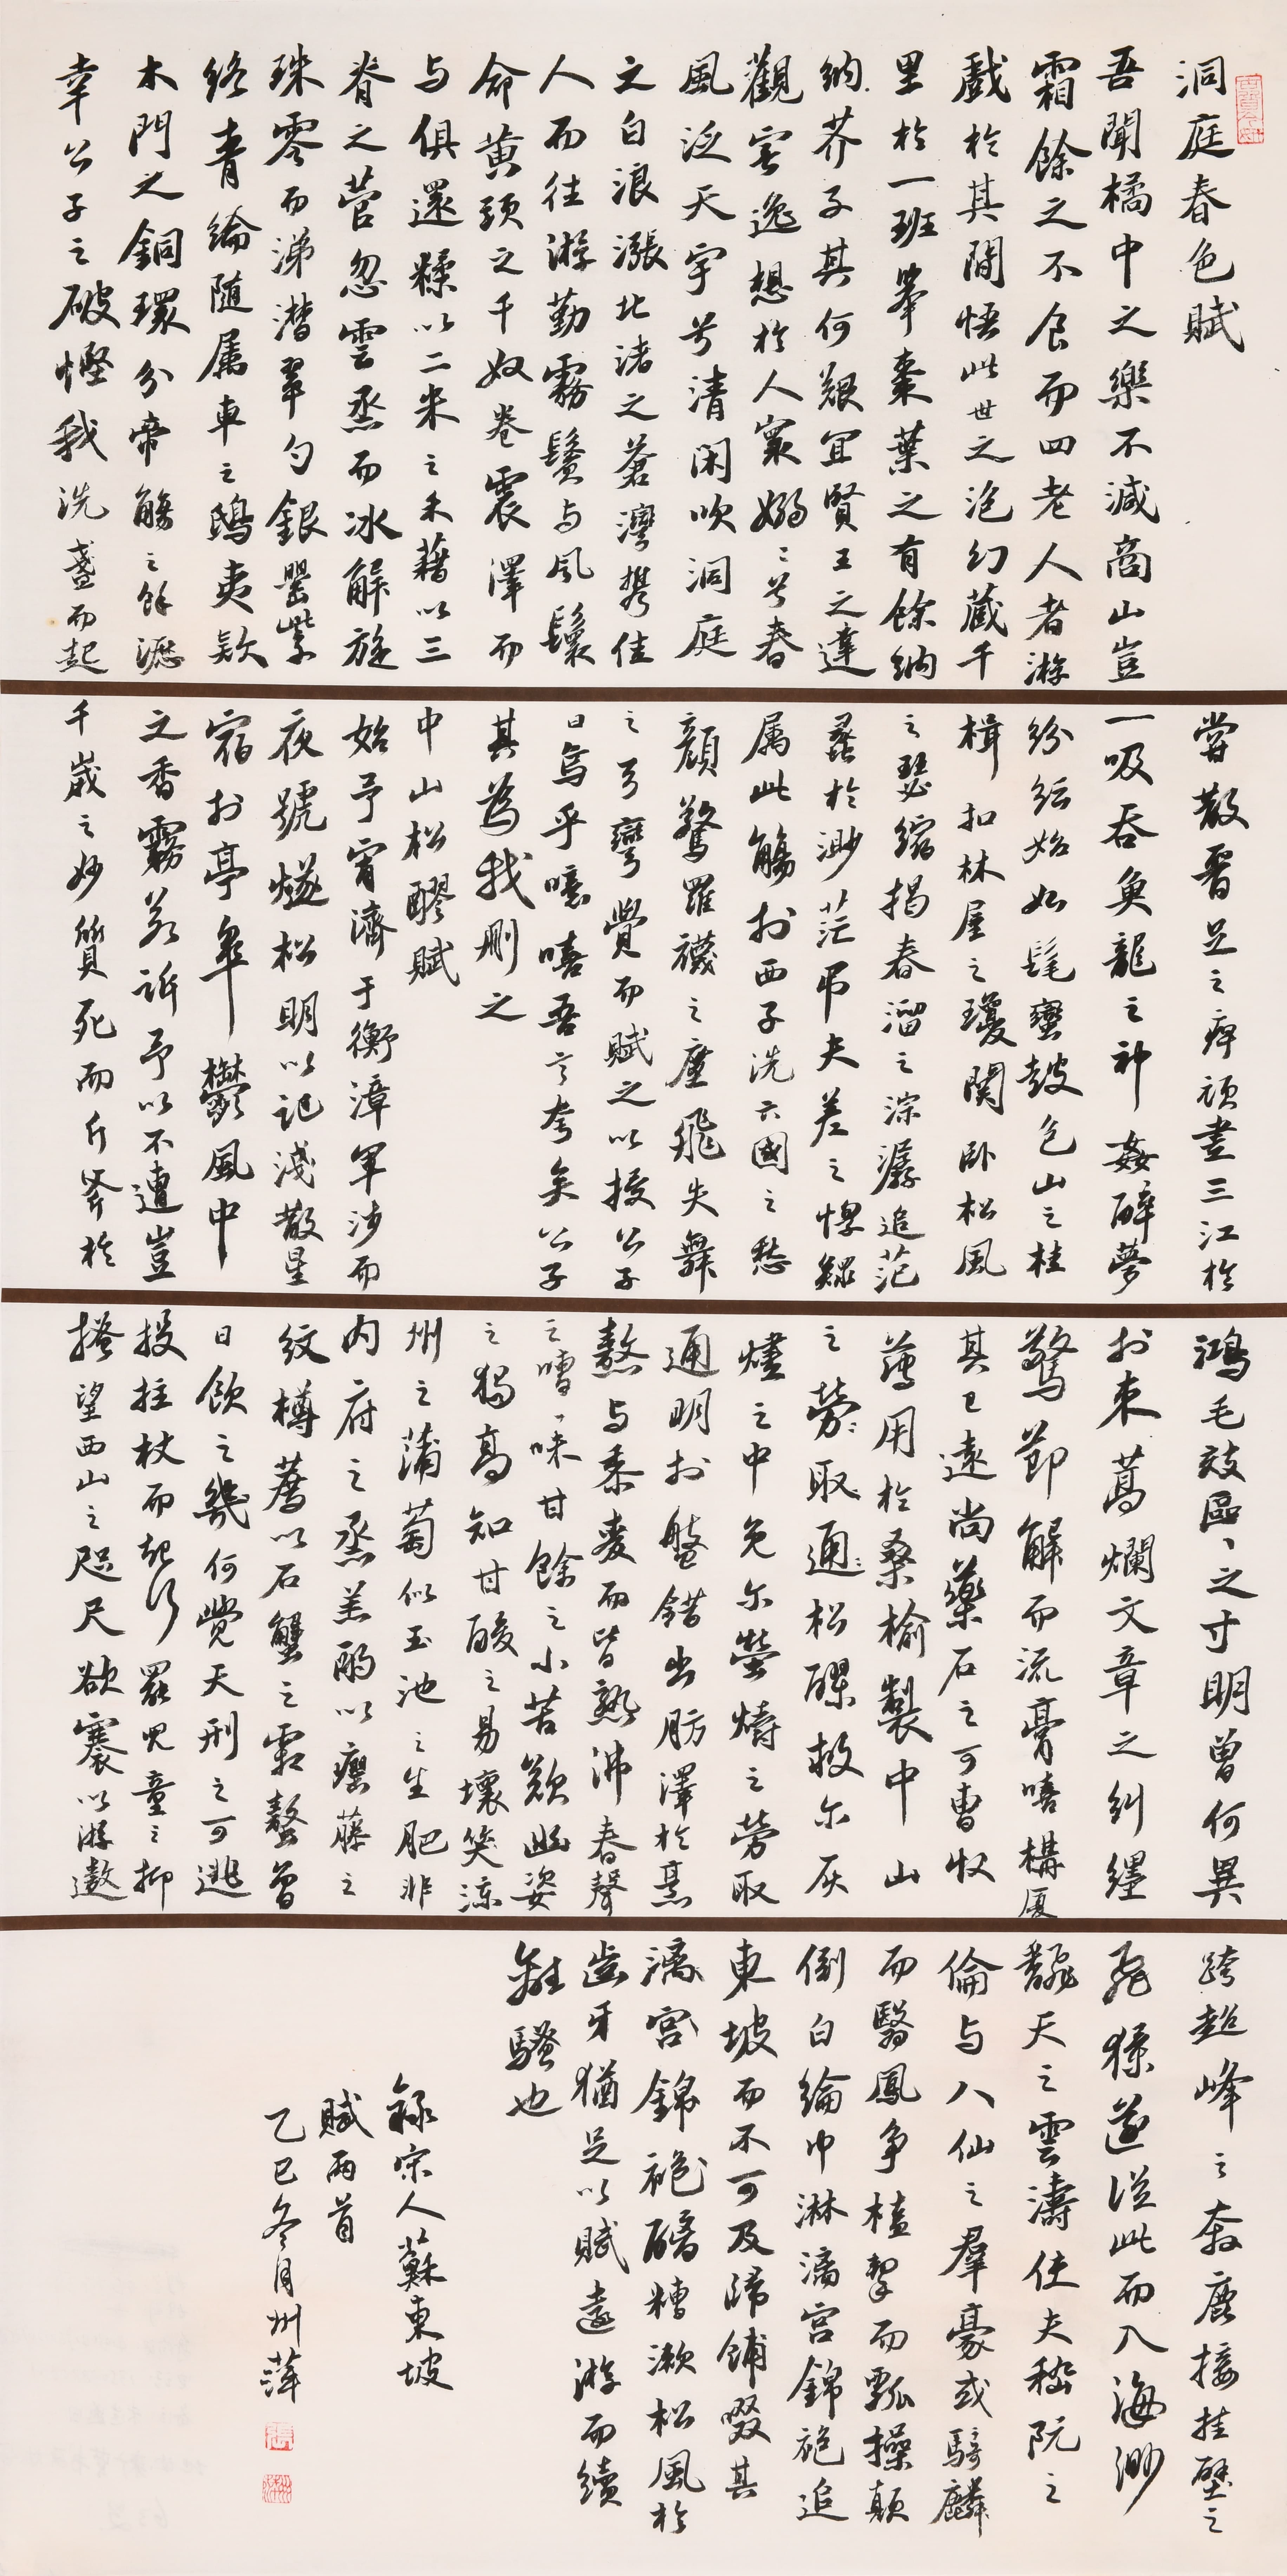 洞庭春色賦
吾聞橘中之樂不減商山豈
霜餘之不食而四老人者游
戲於其間悟此世之泡幻藏千
里於一班舉棗葉之有餘納
納芥子其何艱宜賢王之達
觀寄逸想於人寰嫋〻兮春
風泛天宇兮清閑吹洞庭
之白浪漲北渚之蒼灣攜佳
人而往游勤霧鬢与風鬟
命黃頭之千奴卷震澤而
与俱還糅以二米之禾藉以三
脊之菅忽雲烝而冰解旋
珠零而涕潸翠勺銀罌紫
絡青綸隨属車之鴟夷款
木門之銅環分帝觴之餘瀝
幸公子之破慳我洗盞而起
嘗散足之痺頑盡三江於
一吸吞魚龍之神姦醉夢
紛紜始如髦蠻鼓包山之桂
楫扣林屋之瓊關卧松風
之瑟縮揭春溜之淙潺追范
蠡於渺茫弔夫差之惸鰥
属此觴於西子洗亡國之愁
顏驚羅襪之塵飛失舞
之弓彎覺而賦之以授公子
曰烏乎噫嘻吾言夸矣公子
其為我刪之
中山松醪賦
始予宵濟于衡漳軍涉而
夜號燧松明以記淺散星
宿於亭皋鬱風中
之香霧若訴予以不遭豈
千歲之妙質死而斤斧於
鴻毛效區〻之寸明曾何異
於束蒿爛文章之糾纏
驚節解而流膏嘻構廈
其已遠尚藥石之可曹收
薄用於桑榆製中山
之勞取通松醪救尔灰
燼之中免尔螢爝之勞取
通明於盤錯出肪澤於烹
熬与黍麥而皆熟沸舂聲
之嘈〻味甘餘之小苦歎幽姿
之獨高知甘酸之易壞笑涼
州之蒲萄似玉池之生肥非
內府之烝羔酌以癭藤之
紋樽薦以石蟹之霜螯曾
日飲之幾何覺天刑之可逃
投拄杖而起行罷兒童之抑
搔望西山之咫尺欲褰以游遨
跨超峰之奔鹿接挂壁之
飛猱遂從此而入海渺
翻天之雲濤使夫嵇阮之
倫与八仙之羣豪或騎麟
而翳鳳爭榼挈而瓢操顛
倒白綸巾淋漓宮錦袍追
東坡而不可及歸餔歠其
漓宮錦袍醨糟漱松風於
齒牙猶足以賦遠游而續
離騷也
錄宋人蘇東坡
賦兩首
乙巳冬月州萍